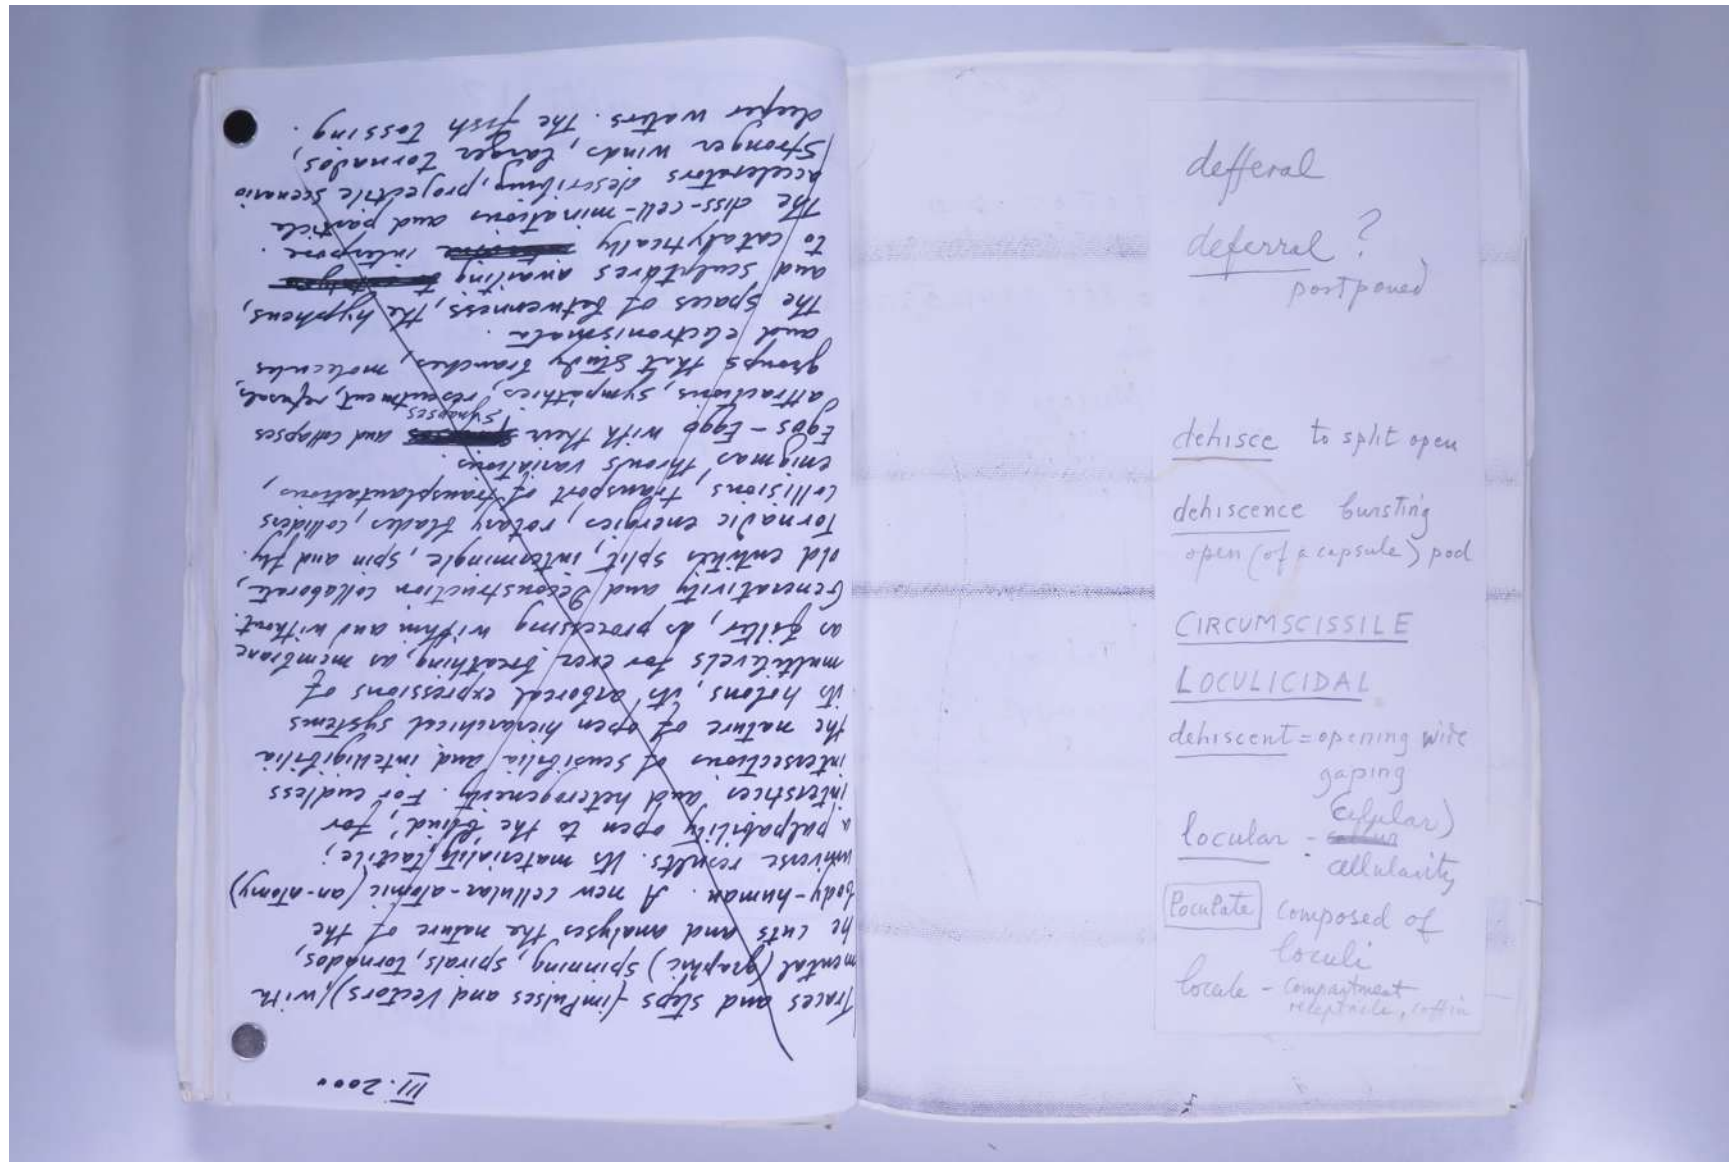 III. 2000
Traces and steps (impulses and Vectors), with
mental (graphic) spinning, spirals, tornados,
he cuts and analyses the nature of the
body-human. A new cellular-atomic (an-atomy)
universe results. Its materiality, tactile;
a palpability open to the 'blind', for
interstices and heterogeneity. For endless
intersections of sensibilia and intelligibilia
the nature of open hierarchical systems
its holons, its arboreal expressions of
multilevels for ever breathing, as membrane
as filter, as processing within and without.
Generativity and Deconstruction collaborate,
old entities split, intermingle, spin and fly.
Tornadic energies, rotary blades, colliders
collisions, transport of transplantations,
enigmas, throws variations.
Egos - Eggo with their synapses and collapses
attractions, sympathies, resentment, refusals,
groups that study branches, molecules
and electronismata.
The spaces of betweenness, the hyphens,
and sculptures awaiting
to catalytically interpose.
The diss-cell-minations and particle
accelerators describing, projectile scenario
Stronger winds, larger tornados,
deeper waters. The fish tossing.
defferal
deferral ?
postponed
dehisce to split open
dehiscence bursting
open (of a capsule) pod
CIRCUMSCISSILE
LOCULICIDAL
dehiscent = opening wide
gaping
locular -
cellularity
loculate composed of
loculi
locule - compartment
receptacle, coffin